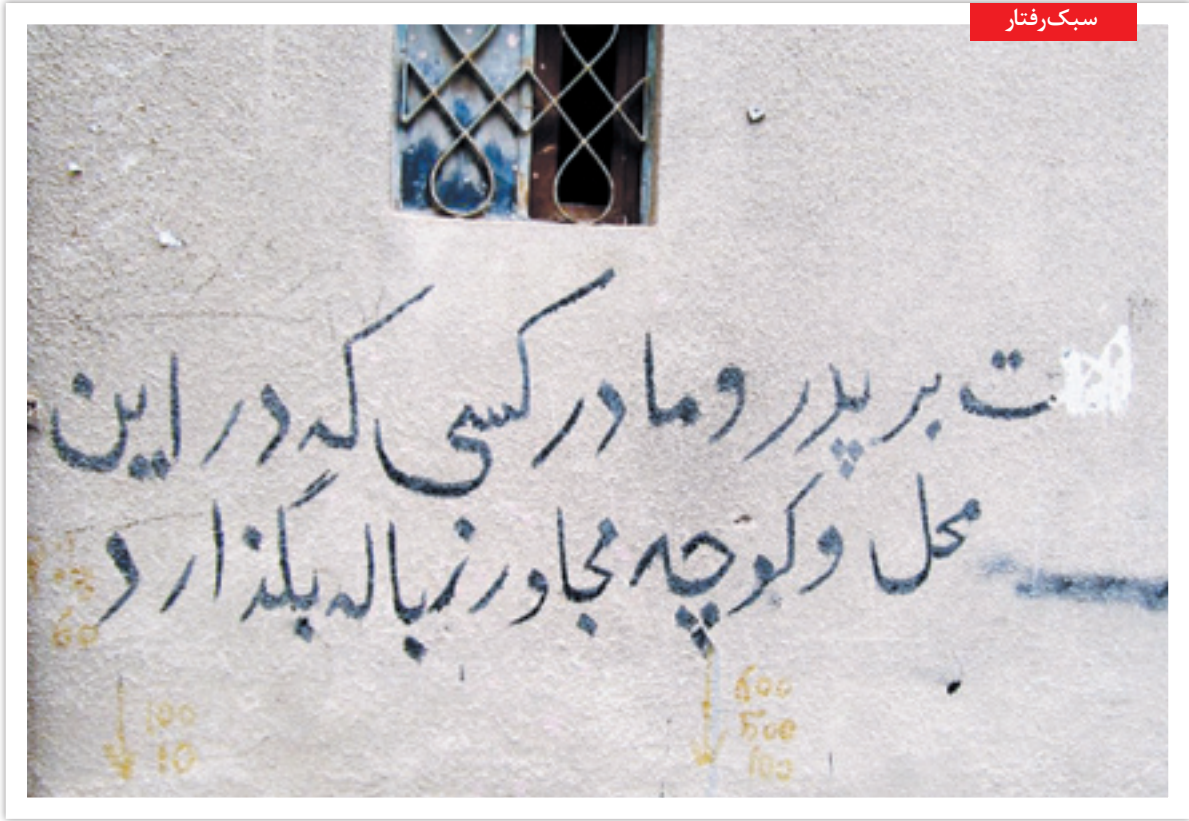 سبک‌رفتار
ت بر پدر و مادر کسی که در این
محل و کوچه مجاور زباله بگذارد
60
100
10
600
500
100